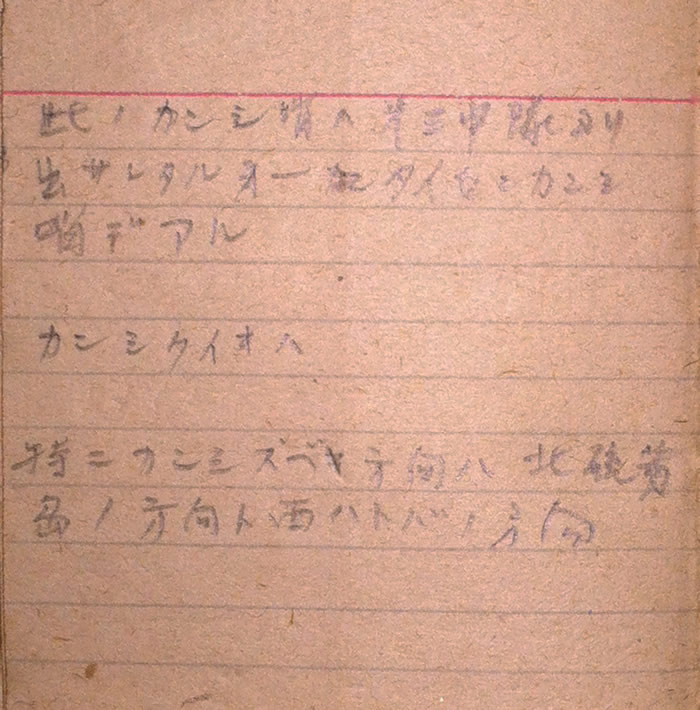 此ノカンシ哨ハ第三中隊ヨリ
出サレタルオー タイセンカンシ
哨デアル
カンシクイオハ
特ニカンシズベキ方向ハ北硫黄
島ノ方向ト西ハトバノ方向